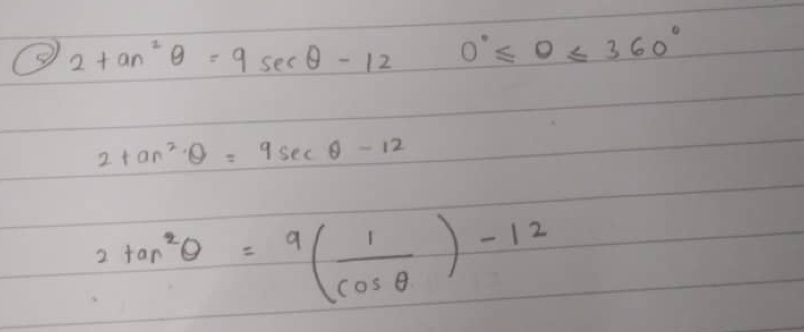 ② 2 tan²θ = 9 secθ - 12 0° ≤ θ ≤ 360°
2 tan²θ = 9 sec θ - 12
2 tan²θ = 9 (1/cos θ) - 12